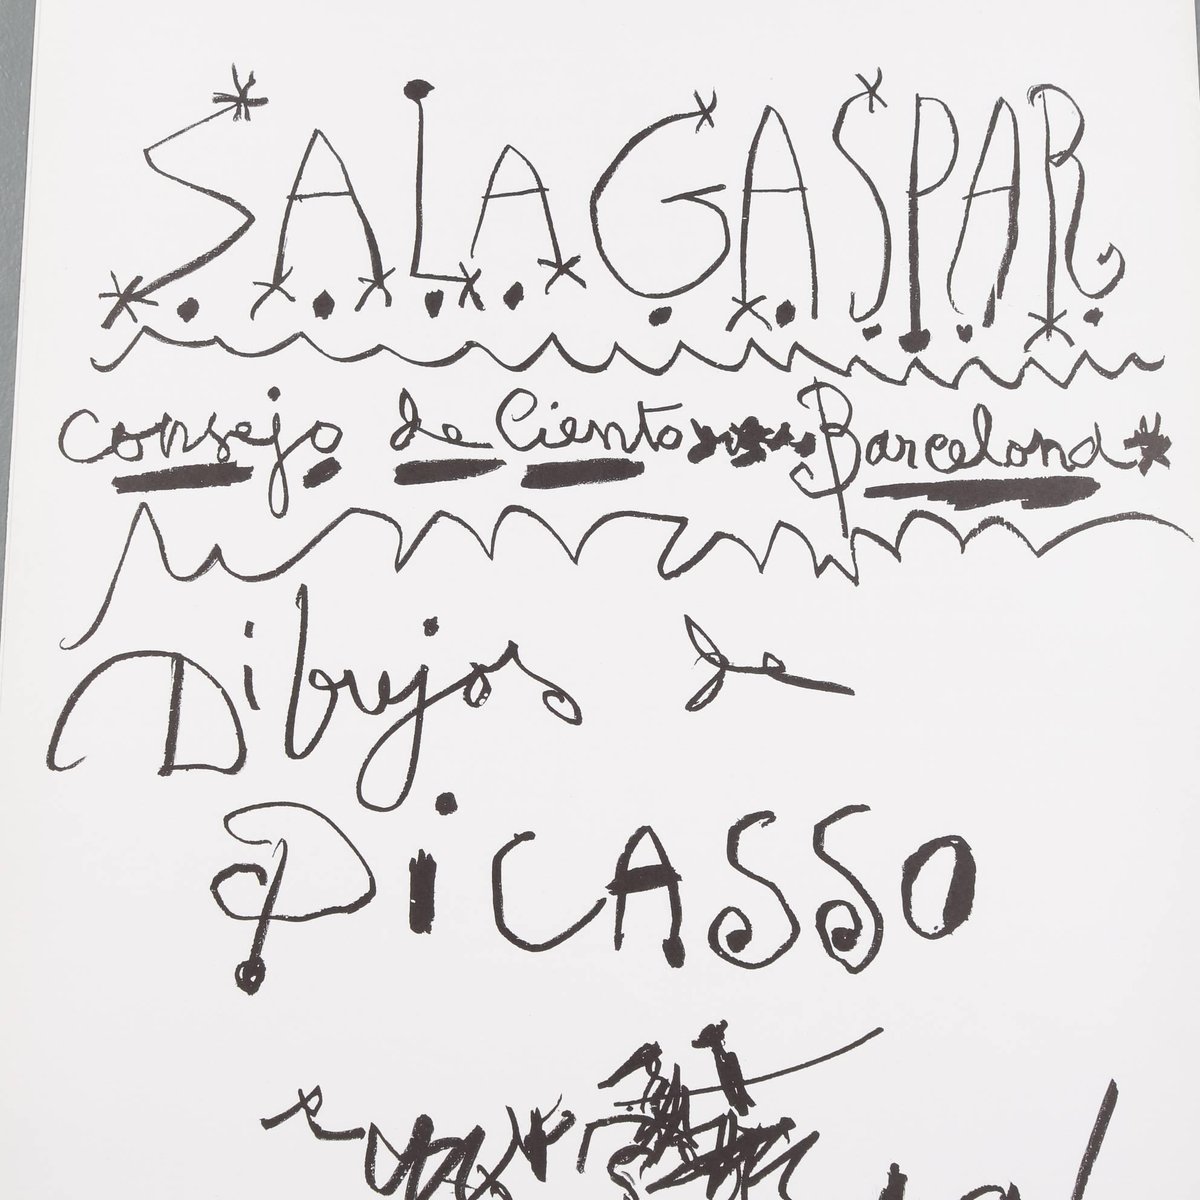 SALA GASPAR
Consejo de Ciento Barcelona
Dibujos de
PiCASSO